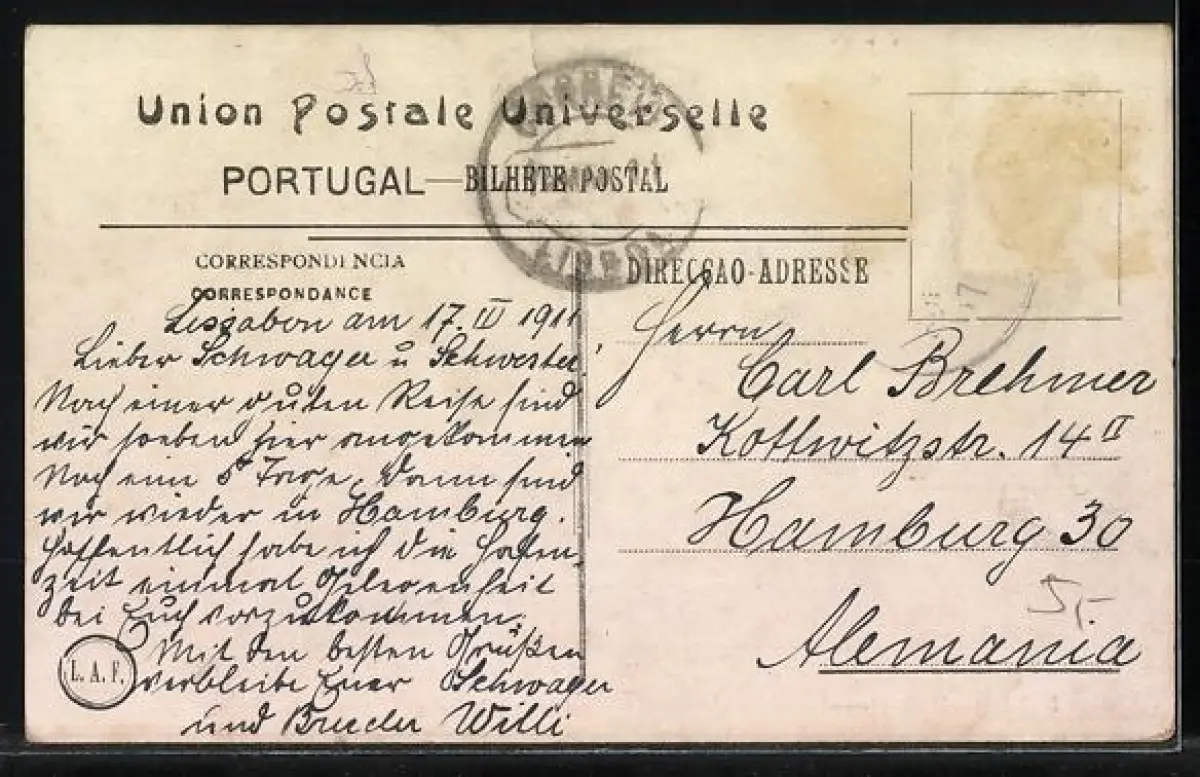 Union Postale Universelle
PORTUGAL—BILHETE POSTAL
CORREIO
LISBOA
CORRESPONDENCIA
CORRESPONDANCE
DIRECÇAO-ADRESSE
Lissabon am 17. IV 1911
Lieber Schwager u Schwester!
Nach einer guten Reise sind
wir soeben hier angekommen
Noch ein 5 Tage, dann sind
wir wieder in Hamburg.
Hoffentlich habe ich die Hafen-
zeit einmal Gelegenheit
bei Euch vorzukommen.
Mit den besten Grüßen
verbleibe Euer Schwager
und Bruder Willi
L. A. F.
Herrn
Carl Brehmer
Kottwitzstr. 14 II
Hamburg 30
Alemania
5,-